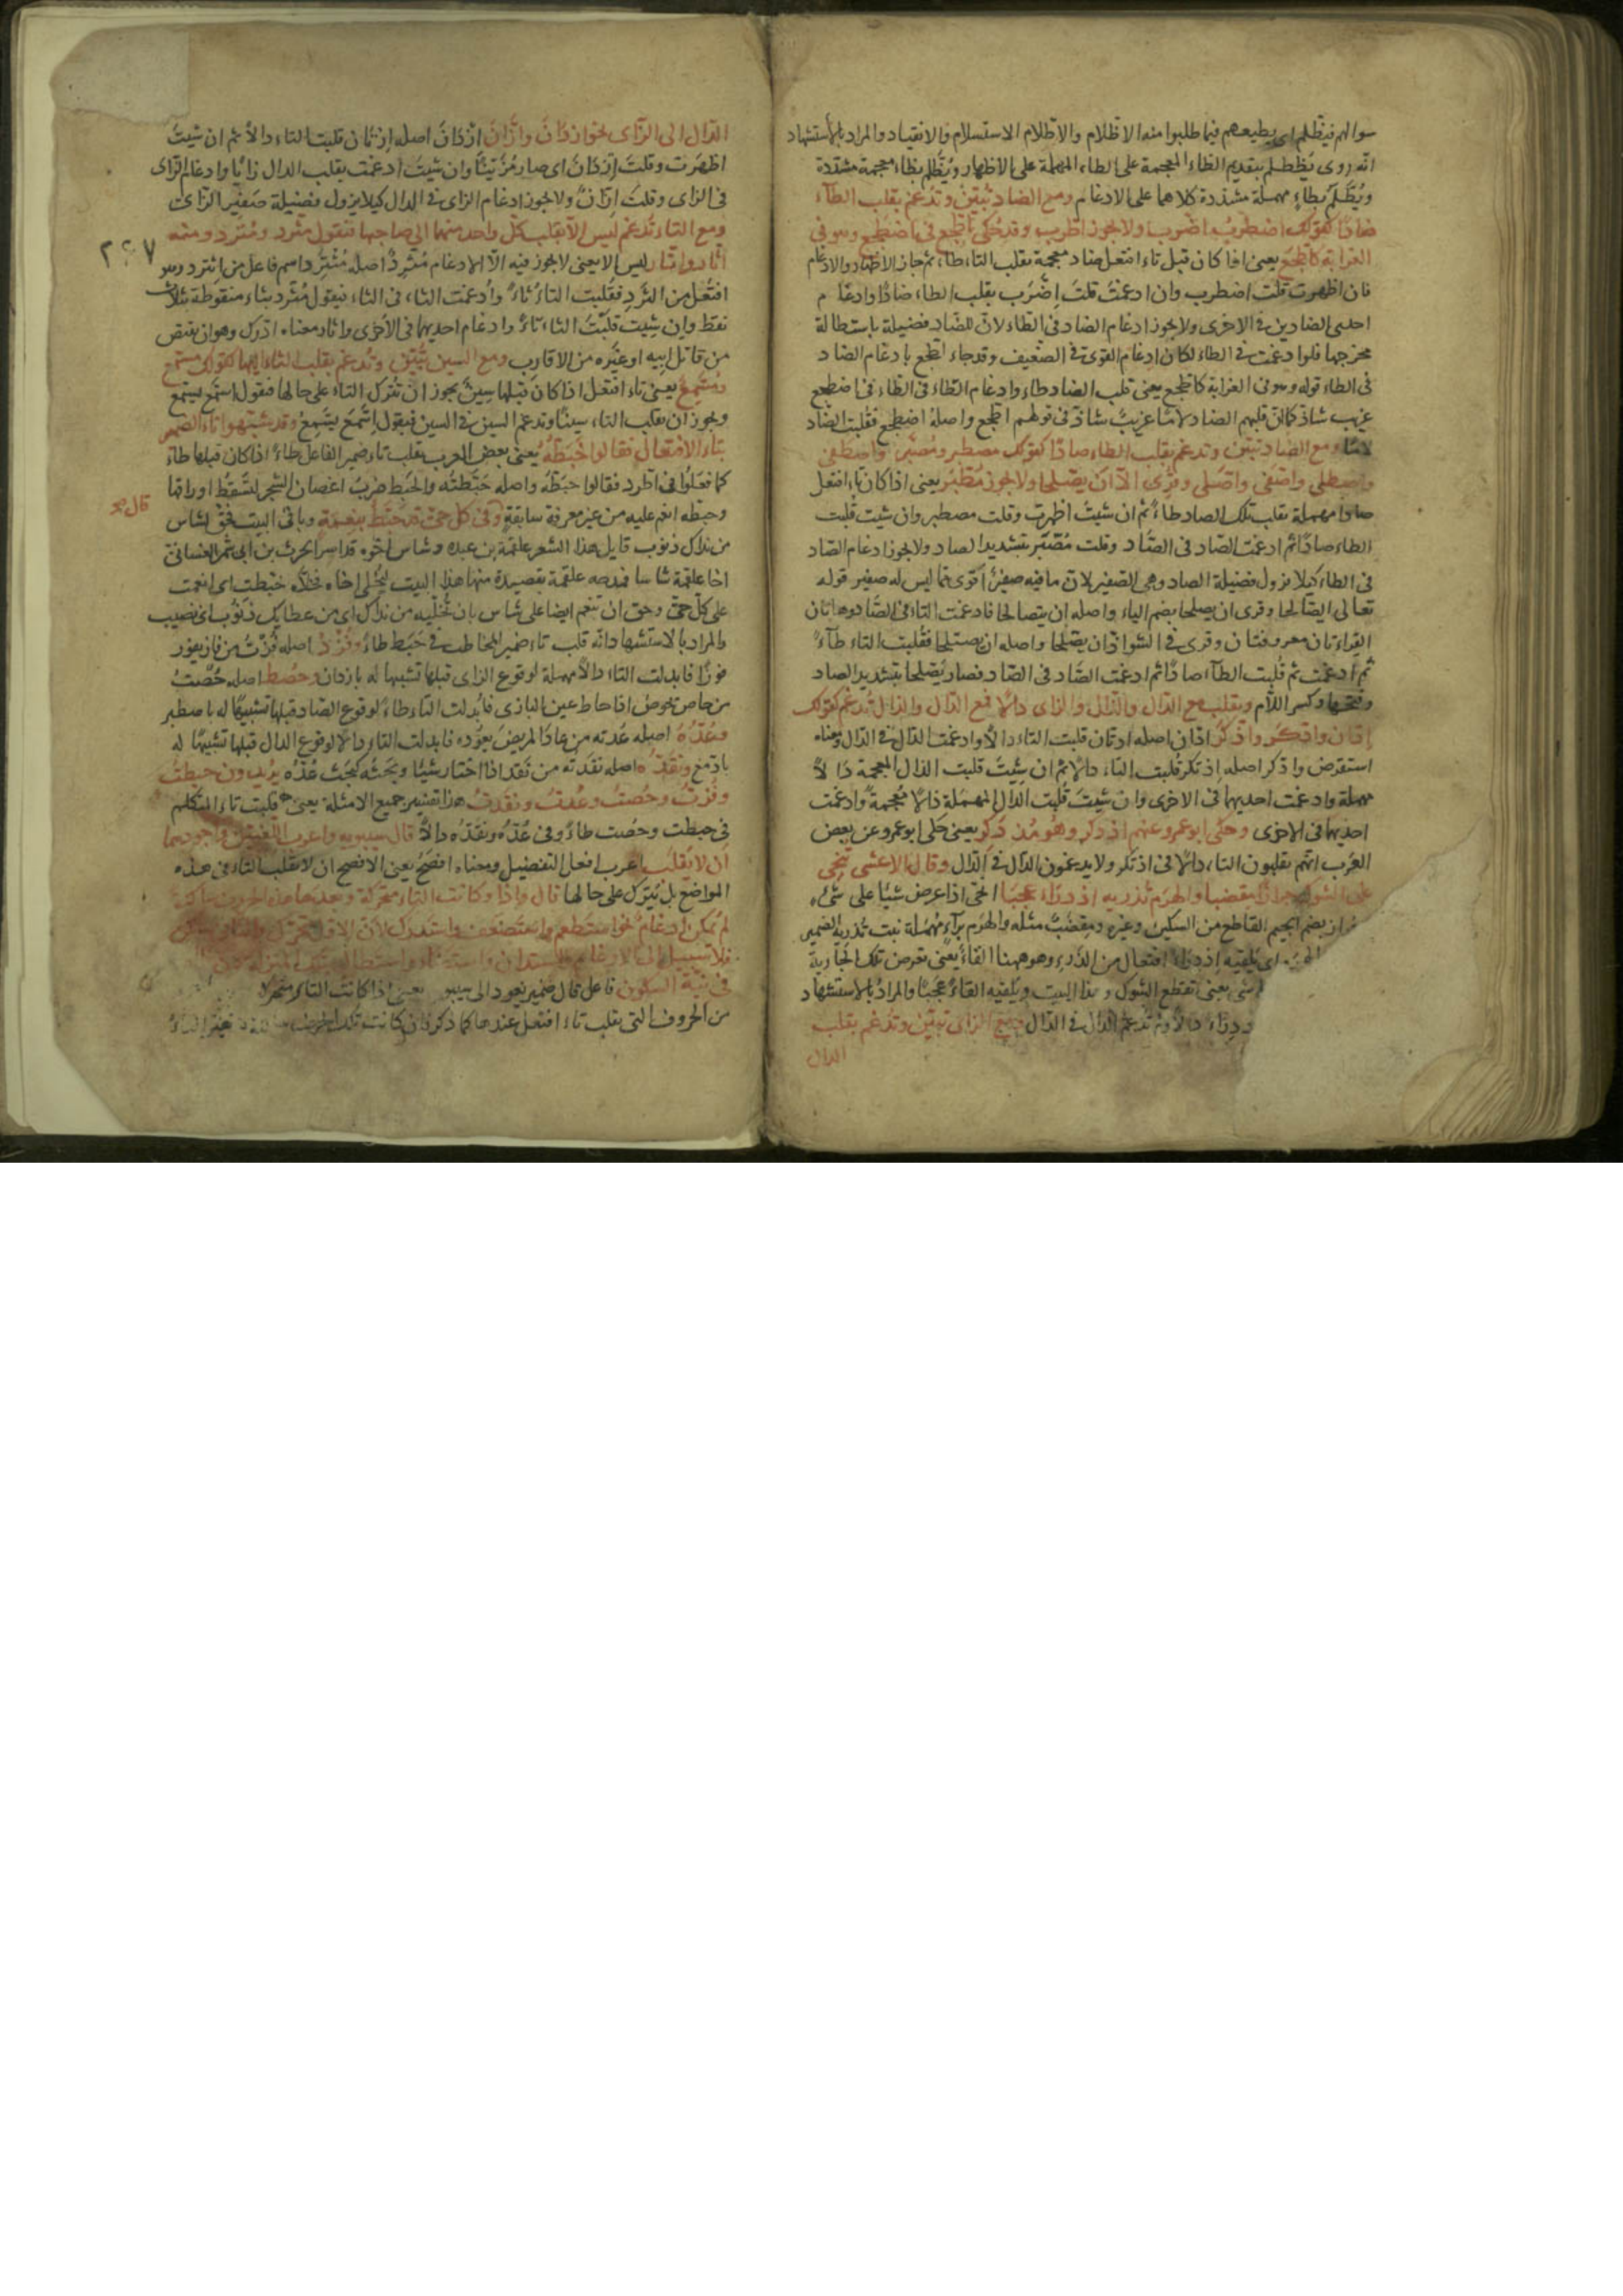 سوالهم فيظلم اى يطيعهم فيما طلبوا منه الاظلام والاظلام الاستسلام والانقياد والمراد بالاستشهاد
انه روى يظطلم بتقديم الظاء المعجمة على الطاء المهملة على الاظهار ويظلم بظاء معجمة مشددة
ويطلم بطاء مهملة مشددة كلاهما على الادغام ومع الضاد تبين وتدغم بقلب الطاء
ضادا كقولك اضطرب واضرب ولا يجوز اطرب وقد حكى اطجع فى اضطجع وهو فى
الغرابة كالطجع يعنى اذا كان قبل تاء افتعل ضاد معجمة تقلب التاء طاء ثم جاز الاظهار والادغام
فان اظهرت قلت اضطرب وان ادغمت قلت اضرب بقلب الطاء ضادا وادغام
احدى الضادين فى الاخرى ولا يجوز ادغام الضاد فى الطاء لان للضاد فضيلة باستطالة
مخرجها فلو ادغمت فى الطاء لكان ادغام القوى فى الضعيف وقد جاء اطجع بادغام الضاد
فى الطاء قوله وهو فى الغرابة كالطجع يعنى قلب الضاد طاء وادغام الطاء فى الطاء فى اضطجع
غريب شاذ كما ان قلبهم الضاد لاما غريب شاذ فى قولهم الطجع واصله اضطجع فقلبت الضاد
لاما ومع الصاد تبين وتدغم بقلب الطاء صادا كقولك مصطبر ومصبر واصطفى
واصطلى واصفى واصلى وقرى الا ان يصلحا ولا يجوز مطبر يعنى اذا كان فاء افتعل
صادا مهملة يقلب تلك الصاد طاء ثم ان شيت اظهرت وقلت مصطبر وان شيت قلبت
الطاء صادا ثم ادغمت الصاد فى الصاد وقلت مصبر بتشديد الصاد ولا يجوز ادغام الصاد
فى الطاء كيلا يزول فضيلة الصاد وهى الصفير لان ما فيه صفير اقوى مما ليس له صفير قوله
تعالى ان يصالحا وقرى ان يصلحا بضم الياء واصله ان يتصالحا فادغمت التاء فى الصاد وهاتان
القراءتان معروفتان وقرى فى الشواذ ان يصلحا واصله ان يصتلحا فقلبت التاء طاء
ثم ادغمت ثم قلبت الطاء صادا ثم ادغمت الصاد فى الصاد فصار يصلحا بتشديد الصاد
وفتحها وكسر اللام وتقلب مع الدال والذال والزاى دالا فمع الدال والذال تدغم كقولك
ادان واذكر اذان اصله ادتان قلبت التاء دالا وادغمت الدال فى الدال ومعناه
استقرض واذكر اصله اذتكر قلبت التاء دالا ثم ان شيت قلبت الذال المعجمة دالا
مهملة وادغمت احديهما فى الاخرى وان شيت قلبت الدال المهملة ذالا معجمة وادغمت
احديهما فى الاخرى وحكى ابو عمرو عنهم اذدكر وهو مذدكر يعنى حكى ابو عمرو عن بعض
العرب انهم يقلبون التاء دالا فى اذتكر ولا يدغمون الذال فى الدال وقال الاعشى تنحى
على الشوك جرازا مقضبا والهرم تذريه اذدراء عجبا انحى اذا عرض شيئا على شىء
جراز بضم الجيم القاطع من السكين وغيره ومقضب مثله والهرم براء مهملة نبت تذريه الضمير
اى تلقيه اذدراء افتعال من الذرى وهو ههنا القاء يعنى تعرض تلك الجارية
شى يعنى تقطع الشوك وهذا البيت ويلقيه القاء عجبا والمراد بالاستشهاد
دراء دالا ولم تدغم الذال فى الدال ومع الزاى تبين وتدغم بقلب
الدال
الدال الى الزاى نحو ازدان وازان ازدان اصله ازتان قلبت التاء دالا ثم ان شيت
اظهرت وقلت ازدان اى صار مزينا وان شيت ادغمت بقلب الدال زايا وادغام الزاى
فى الزاى وقلت ازان ولا يجوز ادغام الزاى فى الدال كيلا يزول فضيلة صفير الزاى
ومع الثاء تدغم ليس الا بقلب كل واحد منهما الى صاحبها فتقول مثرد ومترد ومنه
اثار واتار ليس الا يعنى لا يجوز فيه الا الادغام مثرد اصله مثترد اسم فاعل من اثترد وهو
٢٤٧
افتعل من الثرد فقلبت التاء ثاء وادغمت الثاء فى الثاء فيقول مثرد بثاء منقوطة بثلاث
نقط وان شيت قلبت الثاء تاء وادغام احديهما فى الاخرى واثار معناه ادرك وهو ان يقتص
من قاتل ابيه او غيره من الاقارب ومع السين تبين وتدغم بقلب التاء اليها كقولك مستمع
ومسمع يعنى تاء افتعل اذا كان قبلها سين يجوز ان تترك التاء على حالها فتقول استمع يستمع
ويجوز ان يقلب التاء سينا وتدغم السين فى السين فيقول اسمع يسمع وقد شبهوا تاء الضمير
بتاء الافتعال فقالوا خبطه يعنى بعض العرب يقلب تاء ضمير الفاعل طاء اذا كان قبلها طاء
كما فعلوا فى اطرد فقالوا خبطه واصله خبطته والخبط ضرب اغصان الشجر لتسقط اوراقها
قال
وخبطه انعم عليه من غير معرفة سابقة وفى كل حى قد خبط بنعمة وباقى البيت فحق لشاس
من نداك ذنوب قايل هذا الشعر علقمة بن عبده وشاس اخوه قد اسر الحرث بن ابى شمر الغسانى
اخا علقمة شاسا فمدحه علقمة بقصيدة منها هذا البيت ليخلى اخاه فخلاه خبطت اى انعمت
على كل حى وحق ان تنعم ايضا على شاس بان تخليه من نداك اى من عطايك ذنوب اى نصيب
والمراد بالاستشهاد انه قلب تاء ضمير المخاطب فى خبط طاء وفزد اصله فزت من فاز يفوز
فوزا فابدلت التاء دالا مهملة لوقوع الزاى قبلها تشبيها له بازدان وحصط اصله حصت
من حاص يحوص اذا خاط عين البازى فابدلت التاء طاء لوقوع الصاد قبلها تشبيها له باصطبر
وعده اصله عدته من عاد المريض يعوده فابدلت التاء دالا لوقوع الدال قبلها تشبيها له
بادمغ ونقده اصله نقدته من نقد اذا اختار شيئا وبحثه كبحث عده يريدون خبطت
وفزت وحصت وعدت ونقدت هذا تفسير جميع الامثلة يعنى قلبت تاء المتكلم
فى خبطت وحصت طاء وفى عده ونقده دالا قال سيبويه واعرب اللغتين واجودهما
ان لا يقلب اعرب افعل التفضيل ومعناه افصح يعنى الافصح ان لا تقلب التاء فى هذه
المواضع بل تترك على حالها قال واذا وكانت التاء متحركة وبعدها هذه الحروف ساكنة
لم يمكن ادغام نحو استطعم واستضعف واستدرك لان الاول متحرك والثانى ساكن
فلا سبيل الى الادغام واستدان واستضاء واستطال بتلك المنزلة
فى نية السكون فاعل قال ضمير يعود الى سيبويه يعنى اذا كانت التاء متحركة
من الحروف التى يقلب تاء افتعل عندها كما ذكر فان كانت تلك الحروف